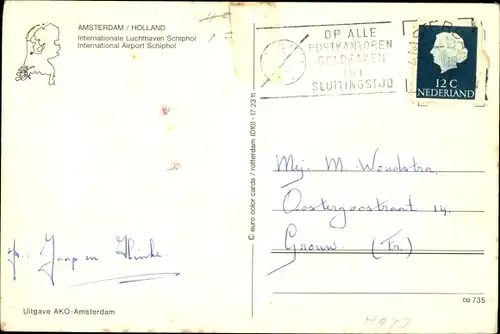 AMSTERDAM / HOLLAND
Internationale Luchthaven Schiphol
International Airport Schiphol
OP ALLE
POSTKANTOREN
GELDZAKEN
TOT
SLUITINGSTIJD
12 C
NEDERLAND
© euro color cards / rotterdam (010) - 17 23 11
Mej. M. Woudstra,
Oostergostraat 14.
Grouw. (Fr.)
Jaap en Hinke.
co 735
Uitgave AKO-Amsterdam